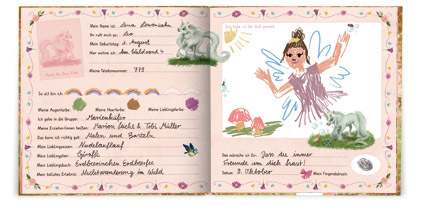 Mein Name ist: Lina Löwenzahn
Ihr ruft mich so: Lilo
Mein Geburtstag: 1. August
Hier wohne ich: Am Waldrand 4
Meine Telefonnummer: 779
So alt bin ich:
Meine Augenfarbe: Meine Haarfarbe: Meine Lieblingsfarbe:
Ich gehe in die Gruppe: Marienkäfer
Meine Erzieher/innen heißen: Marion Sachs & Tobi Müller
Das kann ich richtig gut: Malen und Basteln
Mein Lieblingsessen: Nudelauflauf
Mein Lieblingstier: Giraffe
Mein Lieblingsbuch: Erdbeerinchen Erdbeerfee
Mein tollstes Erlebnis: Nachtwanderung im Wald
Das habe ich für Dich gemalt:
Das wünsche ich Dir: Dass du immer
Freunde um dich hast!
Datum: 9. Oktober Mein Fingerabdruck: